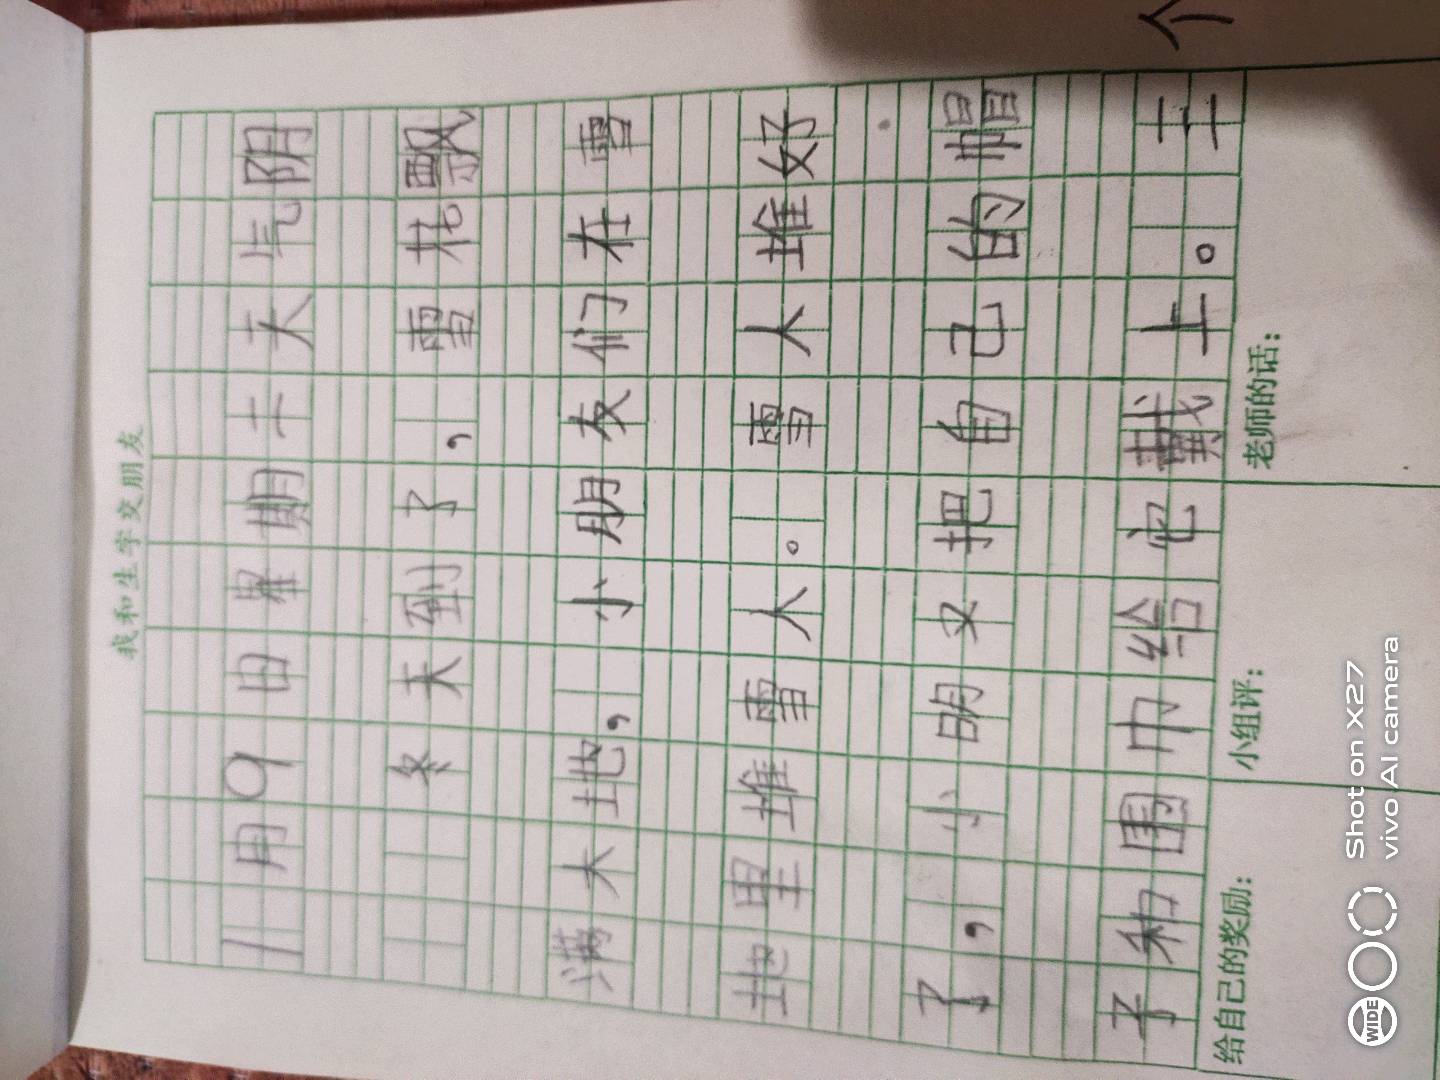 我和生字交朋友
1月9日星期二天气阴
冬天到了，雪花飘
满大地，小朋友们在雪
地里堆雪人。雪人堆好
了，小明又把自己的帽
子和围巾给它戴上。
给自己的奖励： 小组评： 老师的话：
WIDE
Shot on X27
vivo AI camera